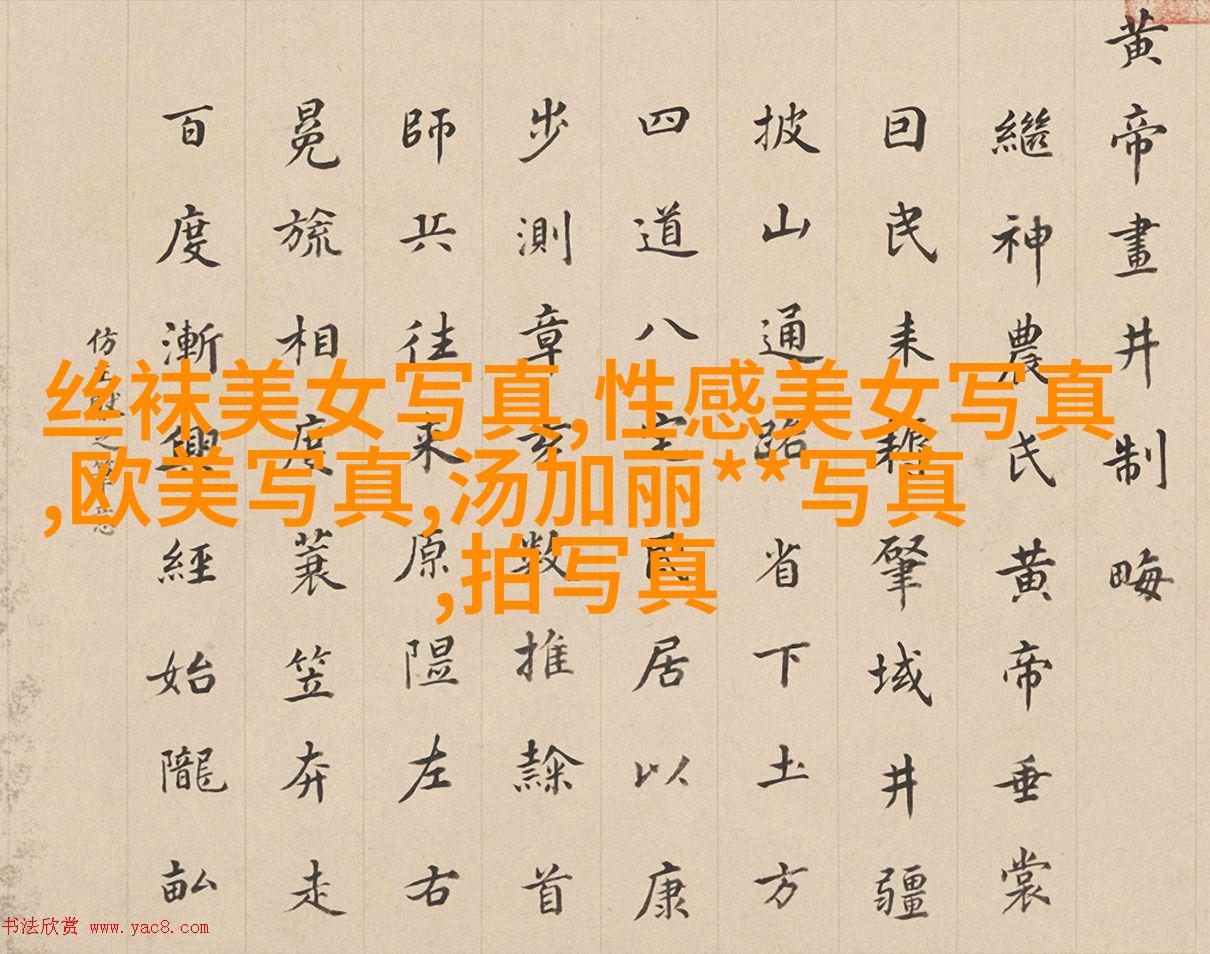 黄帝畫井制畮
繼神農氏黄帝垂裳
囙民耒耨肇域井疆
披山通路省下土方
四道八宅民居以康
步測章亥數推隸首
師兵往来原隰左右
冕旒相度蓑笠奔走
百度漸興經始隴畝
仿之筆意
丝袜美女写真,性感美女写真
,欧美写真,汤加丽**写真
,拍写真
书法欣赏 www.yac8.com